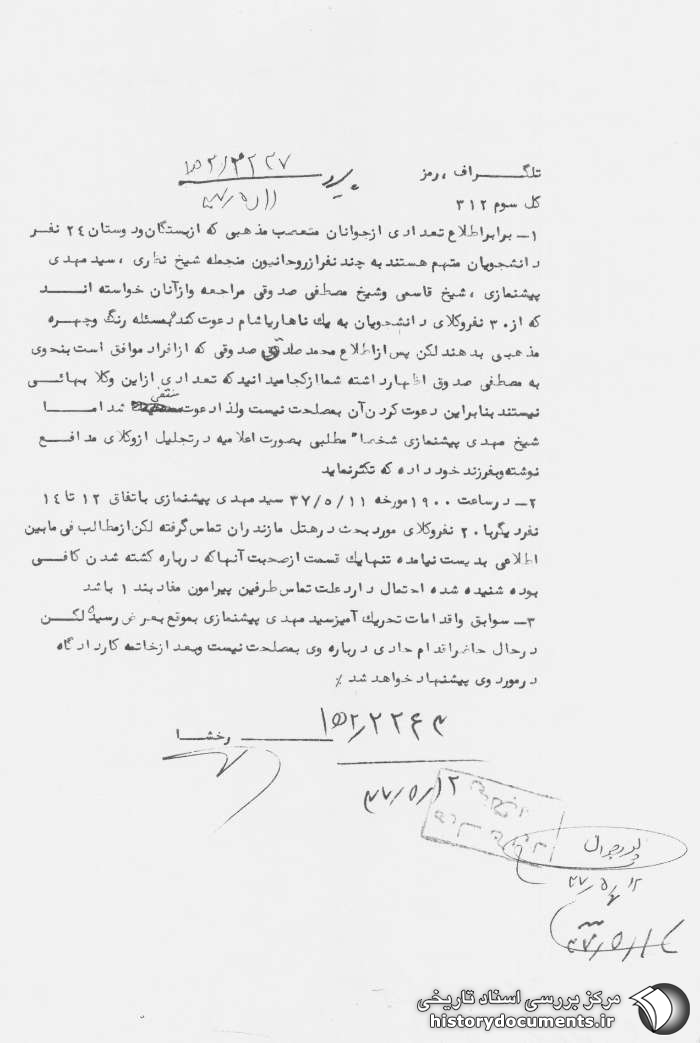 تلگراف رمز
۱۵۲/۲۲۲۷
کل سوم ۳۱۲
۱- برابراطلاع تعدادی ازجوانان متعصب مذهبی که ازبستگان ودوستان ۲۴ نفر
دانشجویان متهم هستند به چند نفرازروحانیون منجمله شیخ نظری ، سید مهدی
پیشنمازی ، شیخ قاسمی وشیخ مصطفی صدوقی مراجعه وازآنان خواسته اند
که از ۳۰ نفروکلای دانشجویان به یك ناهاریاشام دعوت کند مسئله رنگ وچهره
مذهبی بدهند لکن پس ازاطلاع محمد صادق صدوقی که ازافراد موافق است بنحوی
به مصطفی صدوق اظهارداشته شماازکجامیدانیدکه تعدادی ازاین وکلا بهائی
نیستند بنابراین دعوت کردن آن بمصلحت نیست ولذا دعوت منتفی شد اما
شیخ مهدی پیشنمازی شخصا" مطلبی بصورت اعلامیه درتجلیل ازوکلای مدافع
نوشته وبفرزند خود داده که تکثرنماید
۲- درساعت ۱۹۰۰ مورخه ۳۷/۵/۱۱ سید مهدی پیشنمازی باتفاق ۱۲ تا ۱۴
نفردیگربا ۲۰ نفروکلای مورد بحث درهتل مازندران تماس گرفته لکن ازمطالب فی مابین
اطلاعی بدیست نیامده تنهایك قسمت ازصحبت آنهاکه درباره کشته شدن کافی
بوده شنیده شده احتمال دارد علت تماس طرفین پیرامون مفاد بند ۱ باشد
۳- سوابق واقدامات تحریك آمیزسید مهدی پیشنمازی بموقع بعرض رسیده لکن
درحال حاضراقدام حادی درباره وی بمصلحت نیست وبعد ازخاتمه کاردادگاه
درمورد وی پیشنهاد خواهد شد ٪
۱۵۲/۲۲۶۴
رخشا
۳۷/۵/۱۲
۳۷/۵/۱۲
مرکز بررسی اسناد تاریخی
historydocuments.ir